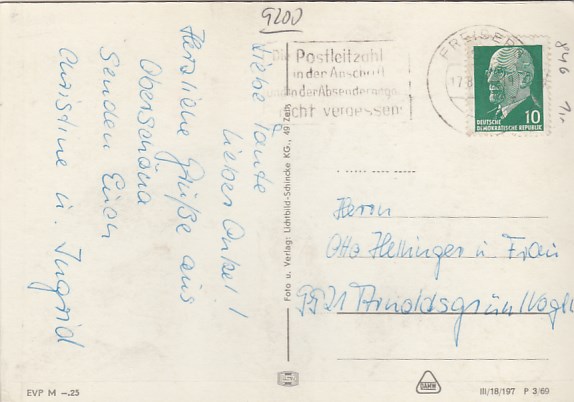 9200
Liebe Tante
Lieber Onkel!
Herzliche Grüße aus
Oberschöna
senden Euch
Christine u. Ingrid
Die Postleitzahl
in der Anschrift
und in der Absenderangabe
nicht vergessen!
FREIBERG
17.8
DEUTSCHE
DEMOKRATISCHE REPUBLIK
10
846
Herrn
Otto Hellinger u. Frau
9921 Arnoldsgrün/Vogtl
Foto u. Verlag: Lichtbild-Schincke KG., 49 Zeitz
EVP M –.25
DAMW
III/18/197 P 3/69